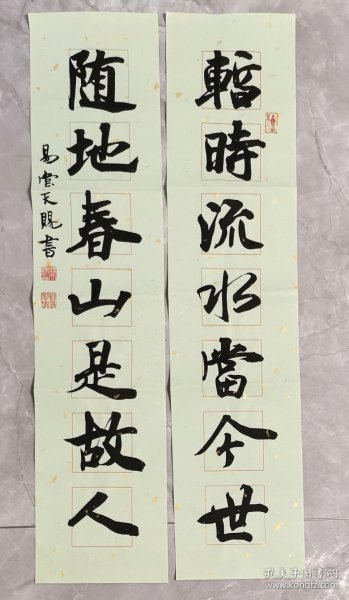 暫時流水當今世
随地春山是故人
易堂天賜書
孔夫子旧书网
www.kongfz.com